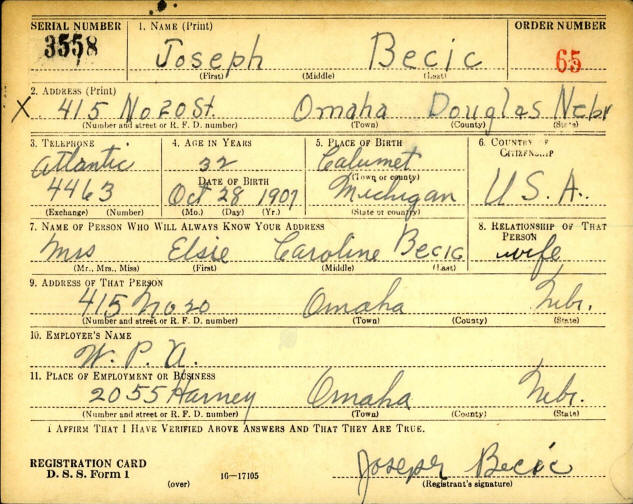 SERIAL NUMBER 1. NAME (Print) ORDER NUMBER
3558 Joseph Becic 65
(First) (Middle) (Last)
2. ADDRESS (Print)
X 415 No 20 St. Omaha Douglas Nebr
(Number and street or R. F. D. number) (Town) (County) (State)
3. TELEPHONE 4. AGE IN YEARS 5. PLACE OF BIRTH 6. COUNTRY OF CITIZENSHIP
Atlantic 32 Calumet
(Town or county)
DATE OF BIRTH
4463 Oct 28 1907 Michigan U.S.A.
(Exchange) (Number) (Mo.) (Day) (Yr.) (State or country)
7. NAME OF PERSON WHO WILL ALWAYS KNOW YOUR ADDRESS 8. RELATIONSHIP OF THAT PERSON
Mrs Elsie Caroline Becic wife
(Mr., Mrs., Miss) (First) (Middle) (Last)
9. ADDRESS OF THAT PERSON
415 No 20 Omaha Nebr.
(Number and street or R. F. D. number) (Town) (County) (State)
10. EMPLOYER'S NAME
W. P. A.
11. PLACE OF EMPLOYMENT OR BUSINESS
2055 Harney Omaha Nebr.
(Number and street or R. F. D. number) (Town) (County) (State)
I AFFIRM THAT I HAVE VERIFIED ABOVE ANSWERS AND THAT THEY ARE TRUE.
REGISTRATION CARD
D. S. S. Form 1 16—17105 Joseph Becic
(over) (Registrant's signature)